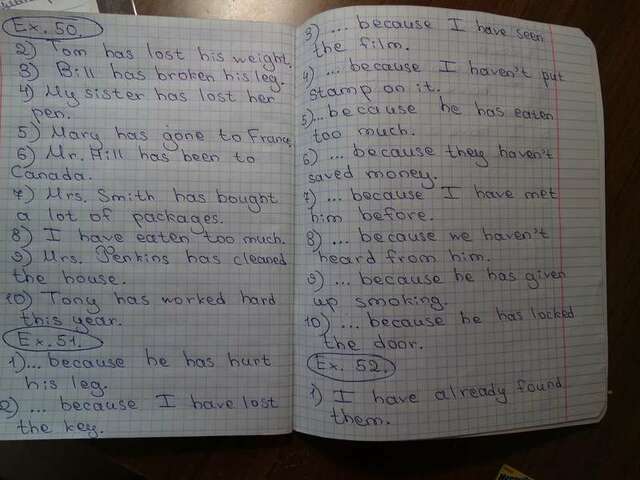 Ex. 50.
2) Tom has lost his weight.
3) Bill has broken his leg.
4) My sister has lost her
pen.
5) Mary has gone to France.
6) Mr. Hill has been to
Canada.
7) Mrs. Smith has bought
a lot of packages.
8) I have eaten too much.
9) Mrs. Jenkins has cleaned
the house.
10) Tony has worked hard
this year.
Ex. 51.
1)... because he has hurt
his leg.
2) ... because I have lost
the key.
3) ... because I have seen
the film.
4) ... because I haven't put
stamp on it.
5)... because he has eaten
too much.
6) ... because they haven't
saved money.
7) ... because I have met
him before.
8) ... because we haven't
heard from him.
9) ... because he has given
up smoking.
10) ... because he has locked
the door.
Ex. 52.
1) I have already found
them.